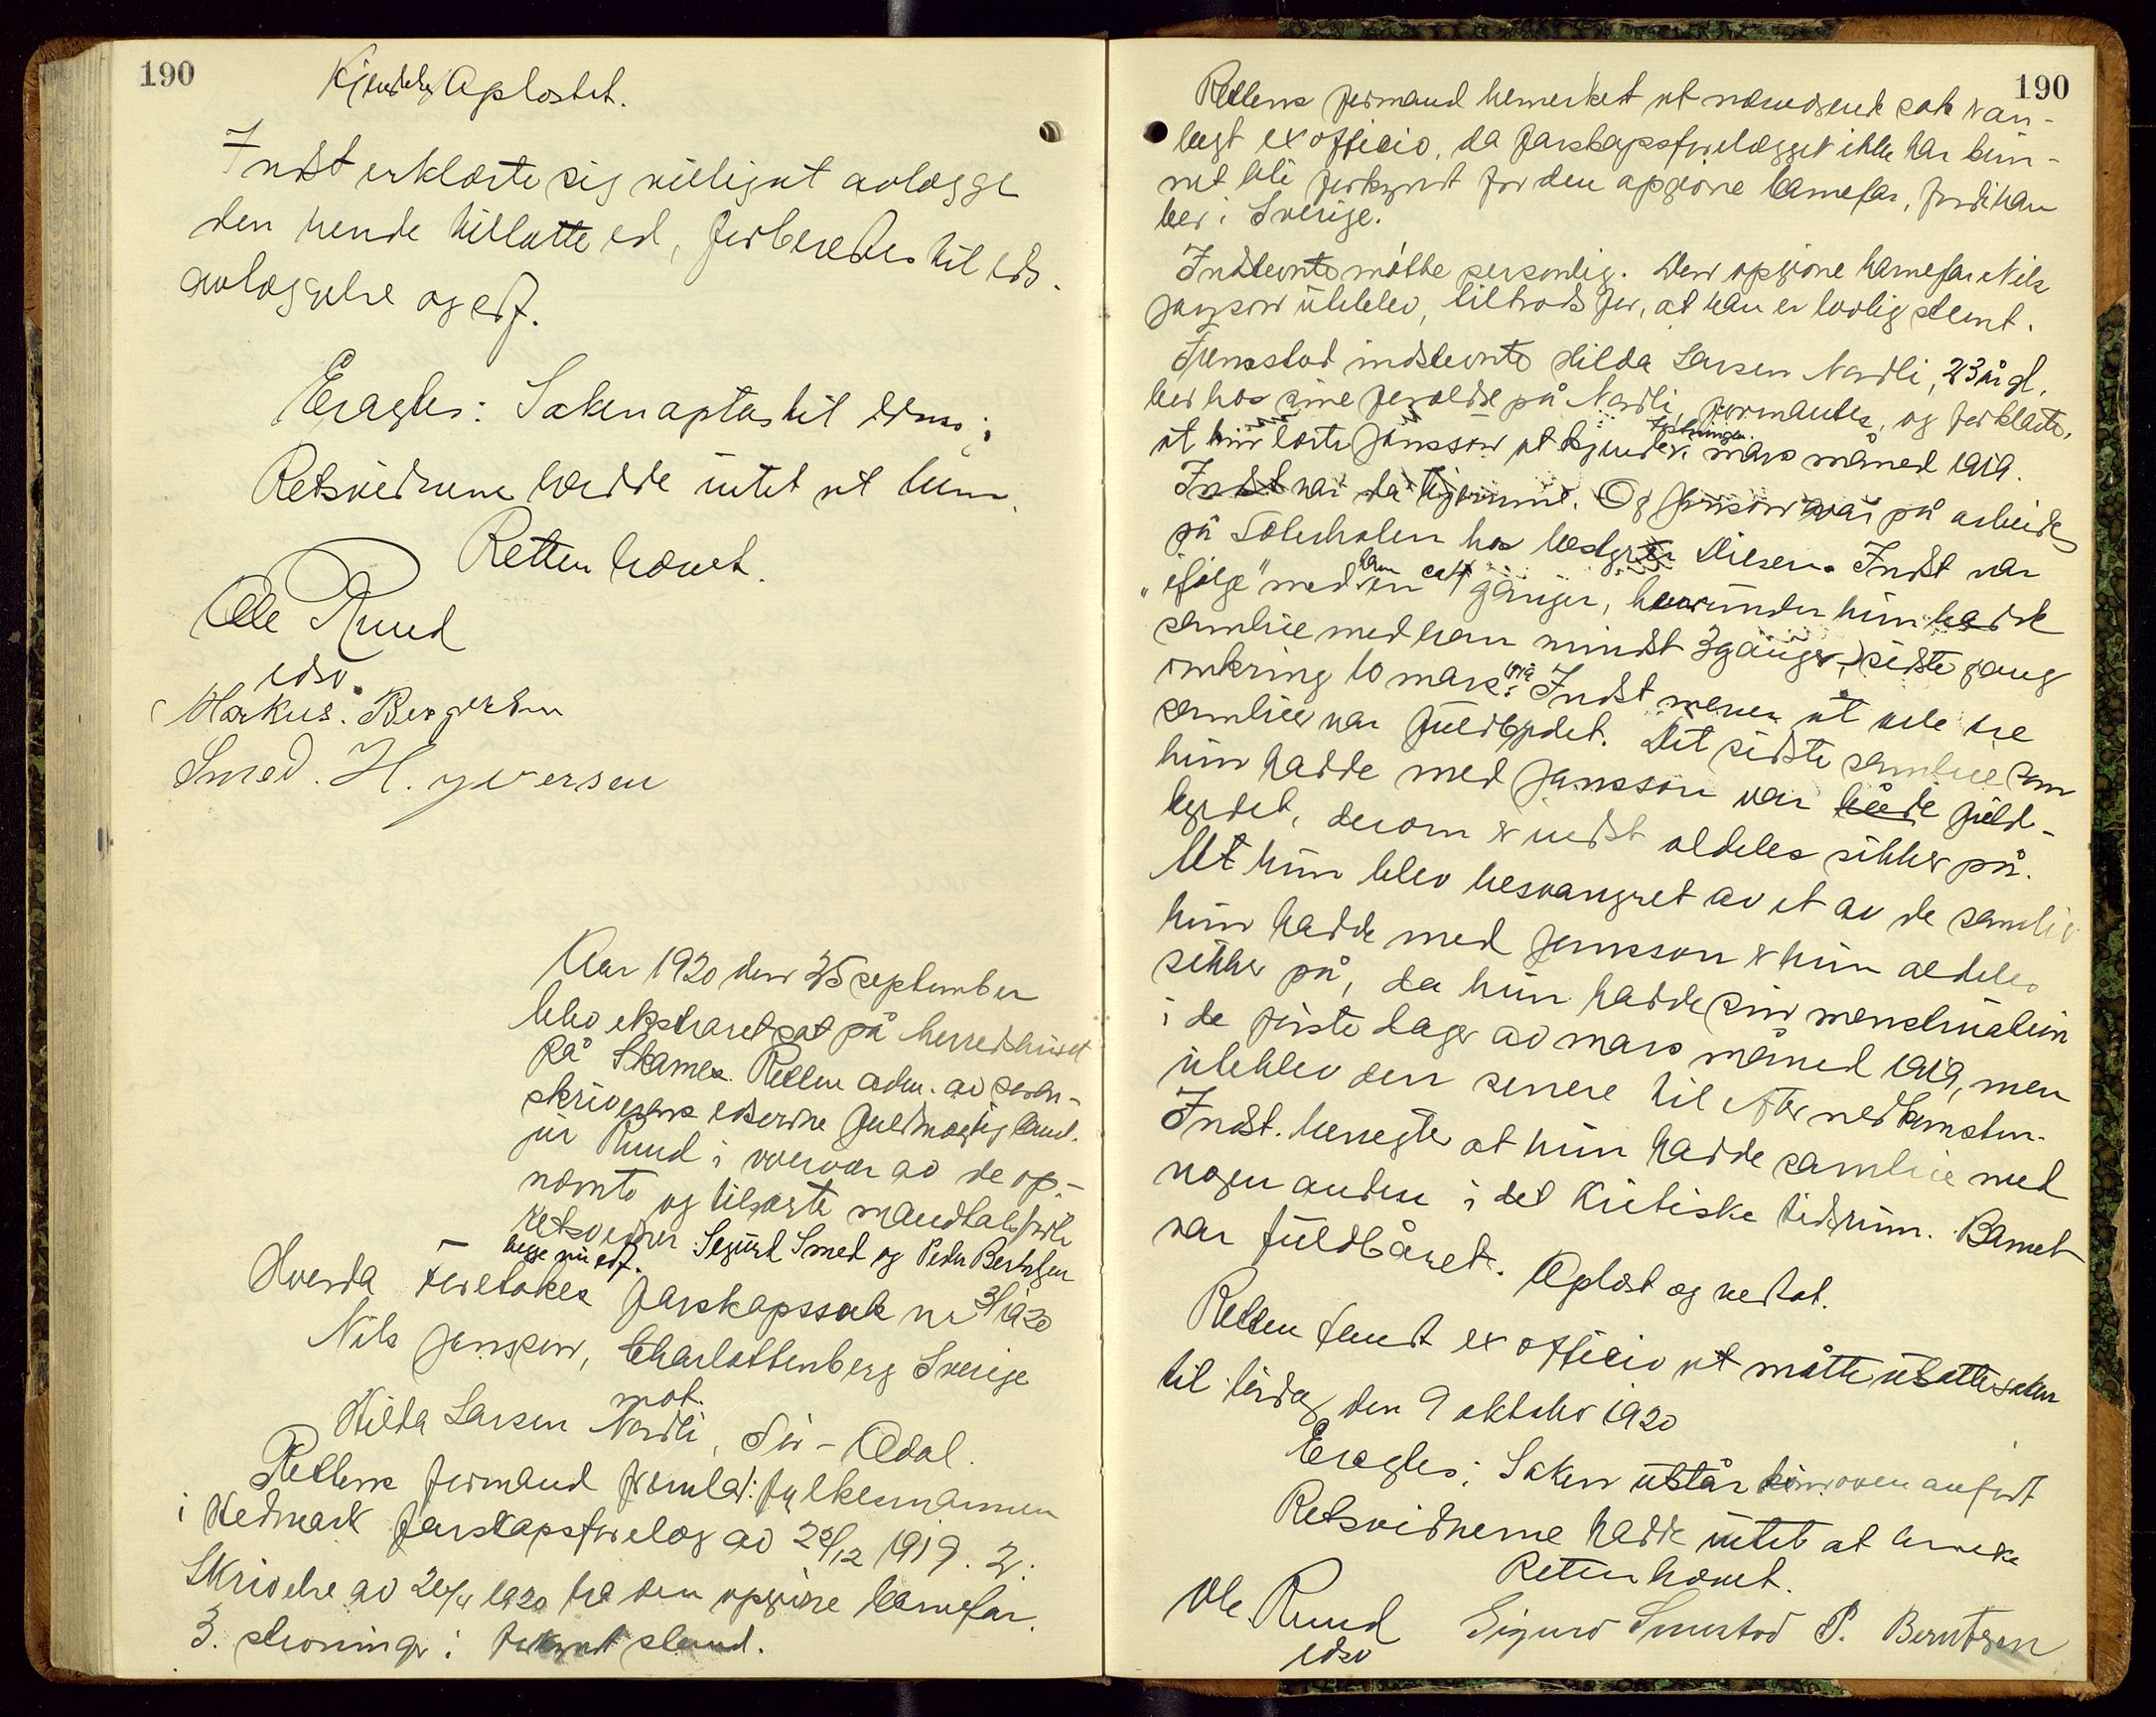 190
Kjendelsen Oplæstet.
Indst erklærte sig villig at avlægge
den hende tillatte ed, forberedes til eds-
avlæggelse og edf.
Eragtes: Saken optas til doms;
Retsvidnerne hadde intet at bem.
Retten hævet.
Ole Ruud
edsv.
Markus. Bergersen
Smed. H. yversen
Aar 1920 den 25 september
blev ekstraret sat på herredshuset
på Skarnes. Retten adm. av soren-
skriverens edsvorne fuldmægtig cand.
jur Ruud i overvær av de op-
nævnte og tilsagte mandtalsførte
retsvidner Sigurd Smed og Peder Berntsen
begge nu edf.
Hvorda Foretokes farskapssak nr 31/1920
Nils Jansson, Charlottenberg Sverige
mot.
Hilda Larsen Nordli, Sør-Odal.
Rettens formand fremla: fylkesmannen
i Hedmark farskapsforelæg av 29/12 1919. 2:
Skrivelse av 20/4 1920 fra den opgivne barnefar.
3. stevning i forkyndt stand.
190
Rettens formand bemerket at nærværende sak er an-
lagt ex officio, da farskapsforelægget ikke har kun-
net bli forkyndt for den opgivne barnefar, fordi han
bor i Sverige.
Indstevnte møtte personlig. Den opgivne barnefar Nils
Jansson uteblev, tiltrods for, at han er lovlig stevnt.
Fremstod indstevnte Hilda Larsen Nordli, 23 år gl,
bor hos sine foreldre på Nordli, formantes, og forklarte,
at hun lærte Jansson at kjende i mars måned 1919.
Indst var da hjemme. Og Jansson var på arbeide
på Solerholen hos landhandler Diesen. Indst var
"ifølge" med ham en 4 ganger, hvorunder hun hadde
samleie med han mindst 3 ganger, sidste gang
omkring 10 mars. Indst mener at alle tre
samleier var fuldbyrdet. Det sidste samleie som
hun hadde med Jansson var både fuld-
byrdet, derom er indst aldeles sikker på.
At hun blev besvangret av et av de samleie
hun hadde med Jansson er hun aldeles
sikker på, da hun hadde sin menstruation
i de første dager av mars måned 1919, men
uteblev den senere til efter nedkomsten.
Indst. benegter at hun hadde samleie med
nogen anden i det kritiske tidsrum. Barnet
var fuldbåret. Oplæst og vedtat.
Retten fandt ex officio at måtte utsætte saken
til lørdag den 9 oktober 1920
Eragtes: Saken utstår som oven anført
Retsvidnerne hadde intet at bemerke
Retten hævet.
Ole Ruud
edsv
Sigurd Smestad P. Berntsen